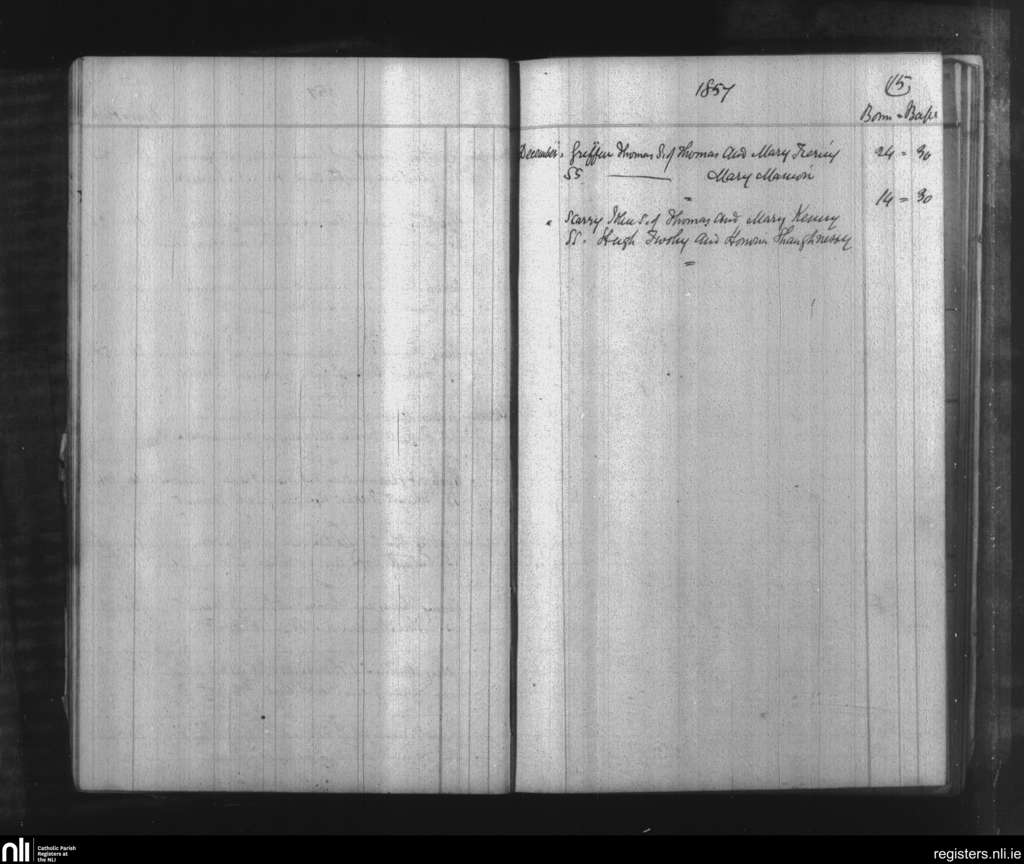 1857
15
Born - Bapt
December " Griffin Thomas S. of Thomas and Mary 24 = 30
SS. Mary Mannion
" Scarry John S. of Thomas and Mary Kenny 14 = 30
SS. Hugh Twohy and Honoria Shaughnessy
nli
Catholic Parish
Registers at
the NLI
registers.nli.ie